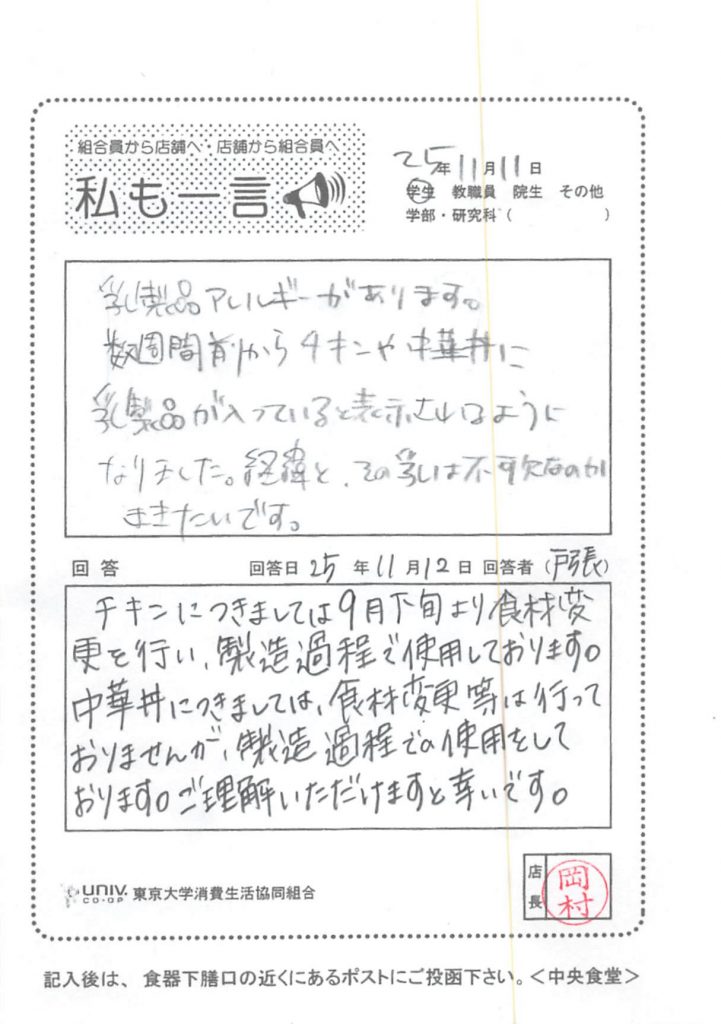 組合員から店舗へ・店舗から組合員へ
私も一言
25年11月11日
学生 教職員 院生 その他
学部・研究科( )
乳製品アレルギーがあります。
数週間前からチキンや中華丼に
乳製品が入っていると表示されるように
なりました。経緯と、その乳は不可欠なのか
ききたいです。
回答 回答日 25年11月12日 回答者(戸張)
チキンにつきましては9月下旬より食材変
更を行い、製造過程で使用しております。
中華丼につきましては、食材変更等は行って
おりませんが、製造過程での使用をして
おります。ご理解いただけますと幸いです。
UNIV. CO-OP 東京大学消費生活協同組合
店長 岡村
記入後は、食器下膳口の近くにあるポストにご投函下さい。<中央食堂>